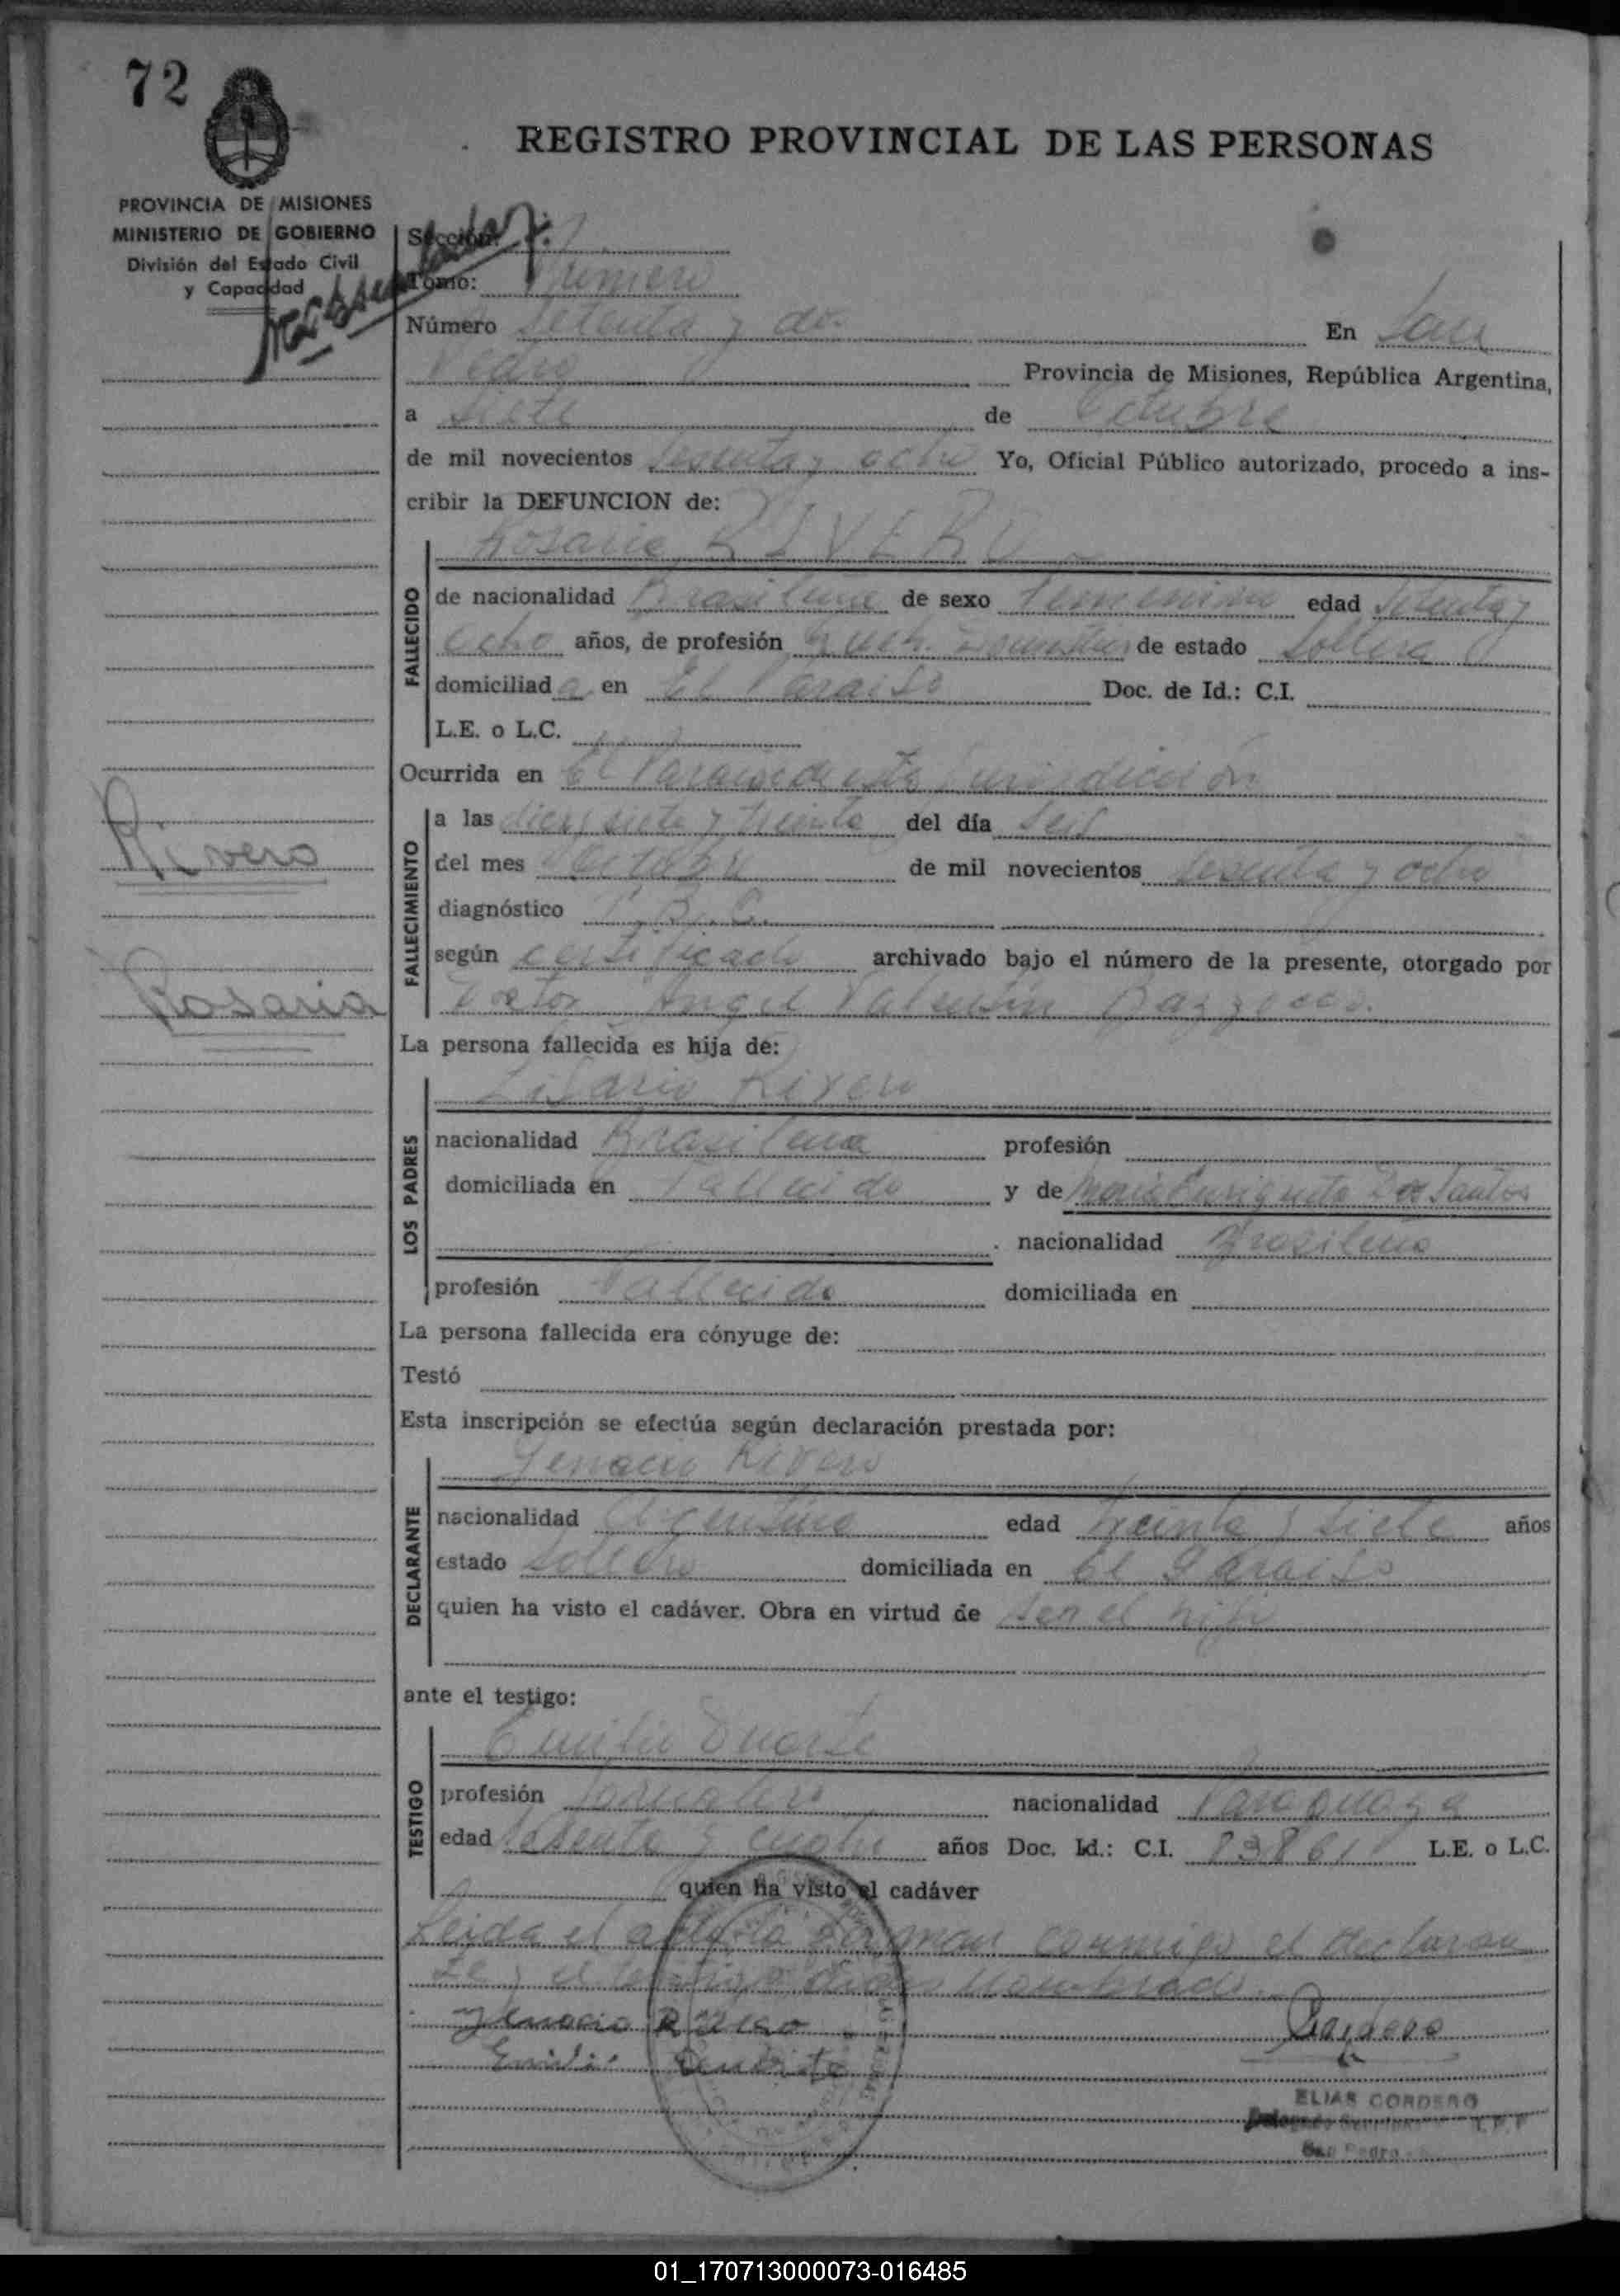 72
REGISTRO PROVINCIAL DE LAS PERSONAS
PROVINCIA DE MISIONES
MINISTERIO DE GOBIERNO
División del Estado Civil
y Capacidad
Sección:
Tomo: Primero
Número Setenta y dos En San
Pedro Provincia de Misiones, República Argentina,
a Siete de Octubre
de mil novecientos Sesenta y ocho Yo, Oficial Público autorizado, procedo a ins-
cribir la DEFUNCION de:
Rosaria RIVERO
FALLECIDO
de nacionalidad Brasileña de sexo Femenino edad Setenta y
Ocho años, de profesión de estado Soltera
domiciliada en El Paraiso Doc. de Id.: C.I.
L.E. o L.C.
Ocurrida en El Paraiso de esta jurisdiccion
Rivero
Rosaria
FALLECIMIENTO
a las diez y siete y treinta del día Seis
del mes Octubre de mil novecientos Sesenta y ocho
diagnóstico T.B.C.
según certificado archivado bajo el número de la presente, otorgado por
Doctor Angel Valentín
La persona fallecida es hija de:
LOS PADRES
Rivero
nacionalidad Brasilena profesión
domiciliada en Fallecido y de Maria Enriqueta Dos Santos
nacionalidad Brasilena
profesión Fallecida domiciliada en
La persona fallecida era cónyuge de:
Testó
Esta inscripción se efectúa según declaración prestada por:
DECLARANTE
Rivero
nacionalidad Argentino edad Treinta y Siete años
estado Soltero domiciliada en El Paraiso
quien ha visto el cadáver. Obra en virtud de ser el hijo
ante el testigo:
TESTIGO
Emilio Duarte
profesión Jornalero nacionalidad Paraguaya
edad Sesenta y cuatro años Doc. Id.: C.I. 83861 L.E. o L.C.
quien ha visto el cadáver
Leida el acta la firman conmigo el declaran
te y el testigo nombrado.
ELIAS CORDERO
San Pedro
01_170713000073-016485